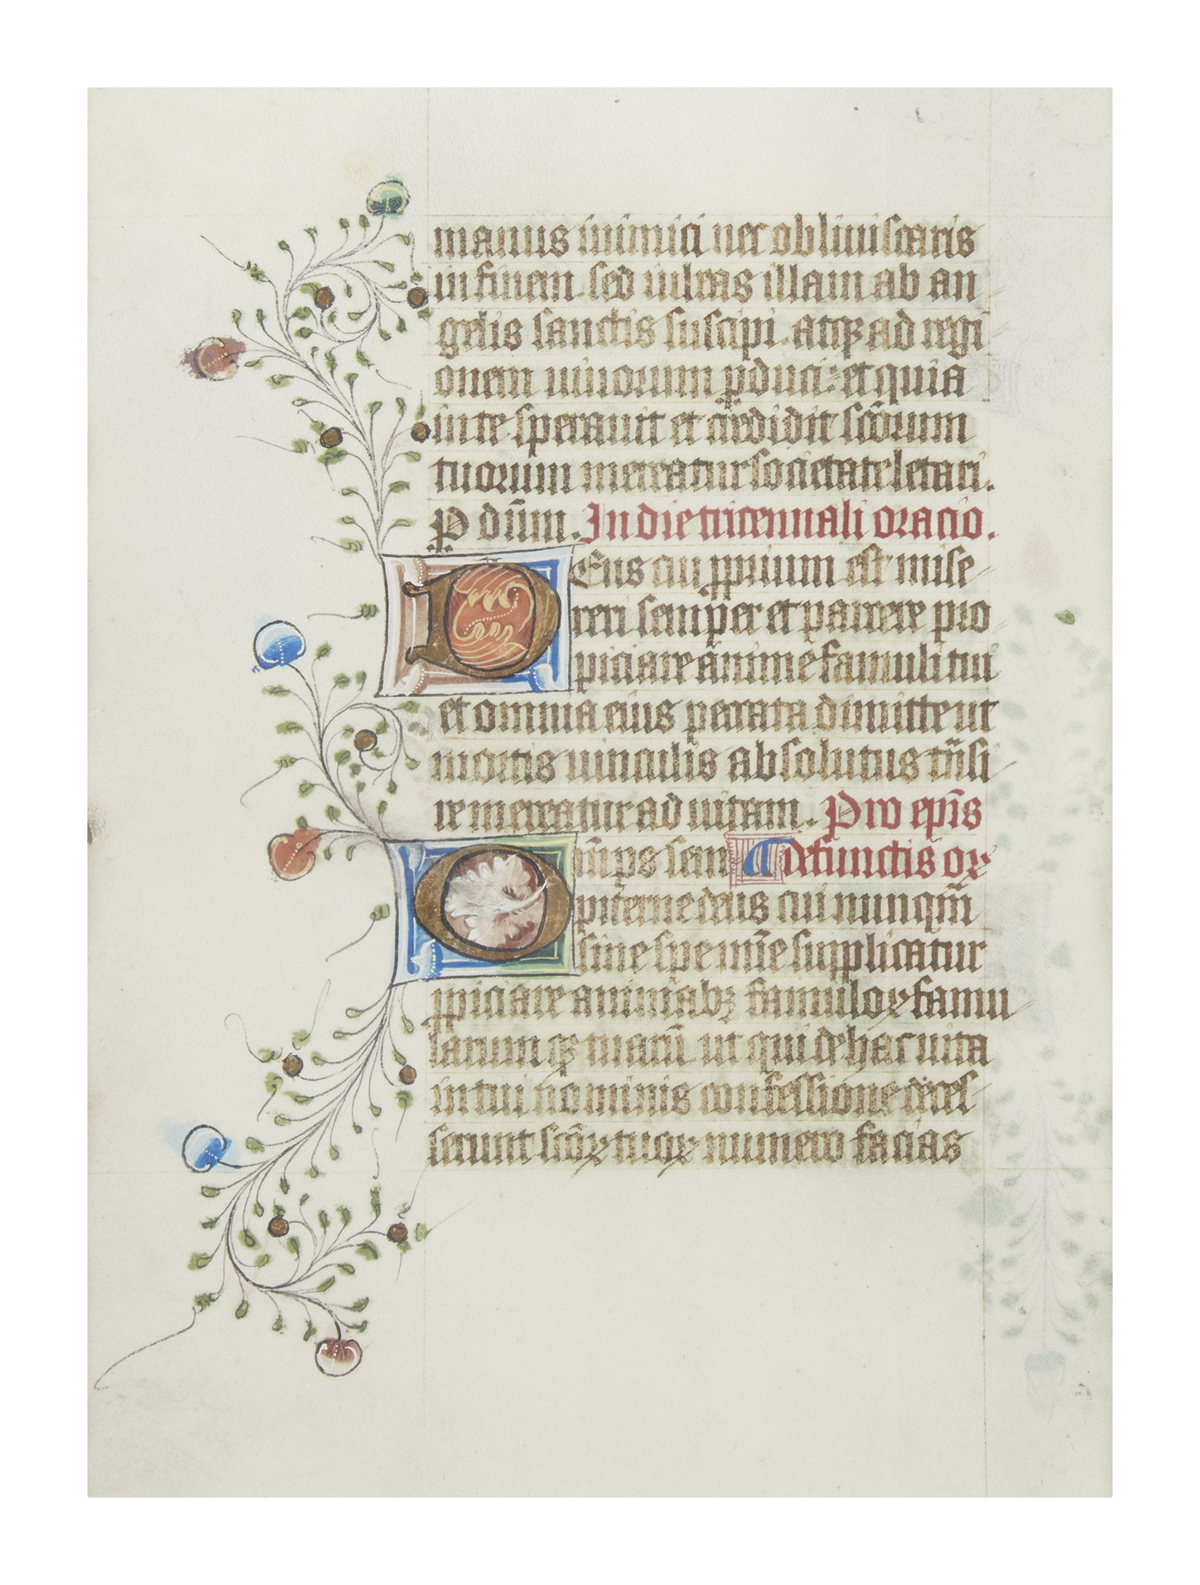 manus inimici nec obliuiscaris
in finem. sed iubeas illam ab an
gelis sanctis suscipi. atqꝫ ad regi
onem uiuorum ꝑduci: et quia
in te sperauit et credidit sc̄orum
tuorum mereatur societate letari.
P dn̄m. In die tricennali oracio.
DEus cui ꝓprium est mise
reri semper et parcere pro
piciare anime famuli tui
et omnia eius peccata dimitte ut
mortis uinculis absolutus trāsi
re mereatur ad uitam. Pro ep̄is
Om̄ps sem defunctis oꝝ
piterne deus cui nunqm̄
sine spe mīe supplicatur
ꝓpiciare animabꝫ famuloꝝ famu
larum qꝫ tuarū ut qui de hac uita
in tui nominis confessione deces
serunt sc̄oꝝ tuoꝝ numero facias